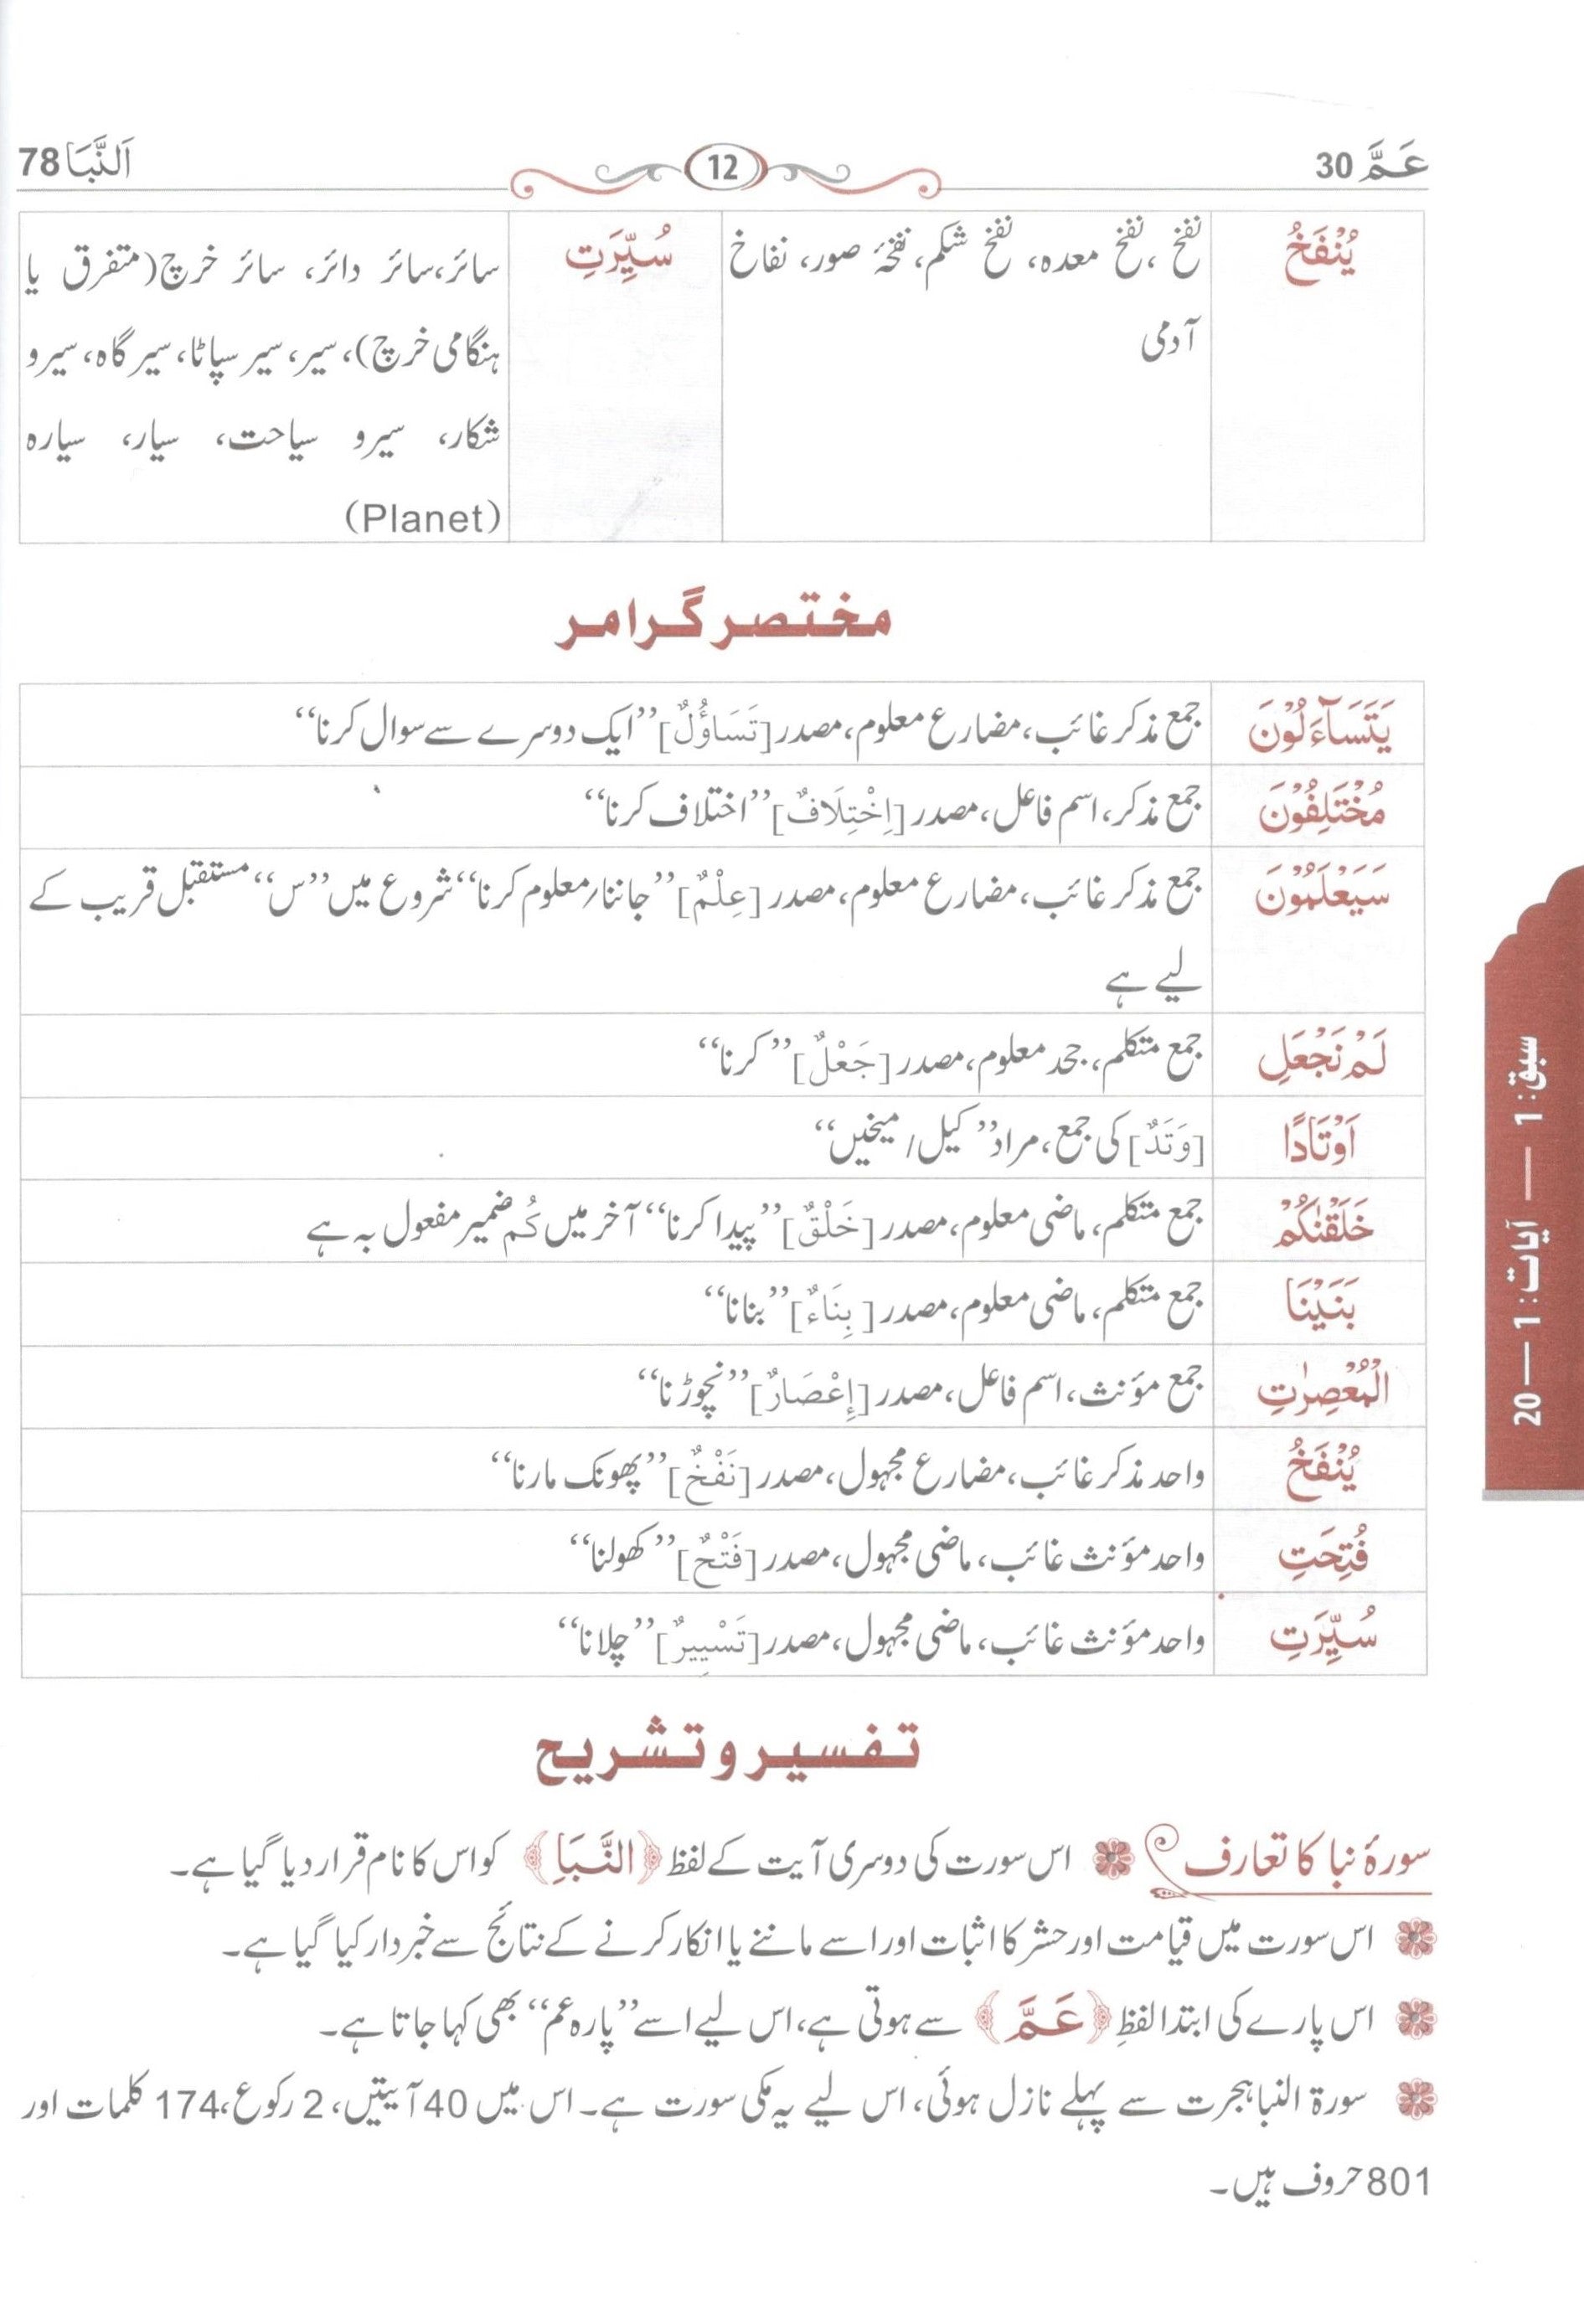 عَمَّ 30
12
اَلنَّبَا 78
يُنْفَخُ
نفخ، نفخ معدہ، نفخ شکم، نفخۂ صور، نفاخ
آدمی
سُيِّرَتِ
سائر، سائر دائر، سائر خرچ (متفرق یا
ہنگامی خرچ)، سیر، سیر سپاٹا، سیر گاہ، سیرو
شکار، سیرو سیاحت، سیار، سیارہ
(Planet)
مختصر گرامر
يَتَسَآءَلُوْنَ جمع مذکر غائب، مضارع معلوم، مصدر [تَسَاؤُلٌ] ’’ایک دوسرے سے سوال کرنا‘‘
مُخْتَلِفُوْنَ جمع مذکر، اسم فاعل، مصدر [اِخْتِلَافٌ] ’’اختلاف کرنا‘‘
سَيَعْلَمُوْنَ جمع مذکر غائب، مضارع معلوم، مصدر [عِلْمٌ] ’’جاننا/معلوم کرنا‘‘ شروع میں ’’س‘‘ مستقبل قریب کے
لیے ہے
لَمْ نَجْعَلِ جمع متکلم، جحد معلوم، مصدر [جَعْلٌ] ’’کرنا‘‘
اَوْتَادًا [وَتَدٌ] کی جمع، مراد ’’کیل/میخیں‘‘
خَلَقْنٰكُمْ جمع متکلم، ماضی معلوم، مصدر [خَلْقٌ] ’’پیدا کرنا‘‘ آخر میں كُم ضمیر مفعول بہ ہے
بَنَيْنَا جمع متکلم، ماضی معلوم، مصدر [بِنَاءٌ] ’’بنانا‘‘
الْمُعْصِرٰتِ جمع مؤنث، اسم فاعل، مصدر [إِعْصَارٌ] ’’نچوڑنا‘‘
يُنْفَخُ واحد مذکر غائب، مضارع مجہول، مصدر [نَفْخٌ] ’’پھونک مارنا‘‘
فُتِحَتِ واحد مؤنث غائب، ماضی مجہول، مصدر [فَتْحٌ] ’’کھولنا‘‘
سُيِّرَتِ واحد مؤنث غائب، ماضی مجہول، مصدر [تَسْيِيرٌ] ’’چلانا‘‘
تفسیر و تشریح
سورۂ نبا کا تعارف اس سورت کی دوسری آیت کے لفظ ﴿النَّبَاِ﴾ کو اس کا نام قرار دیا گیا ہے۔
اس سورت میں قیامت اور حشر کا اثبات اور اسے ماننے یا انکار کرنے کے نتائج سے خبردار کیا گیا ہے۔
اس پارے کی ابتدا لفظِ ﴿عَمَّ﴾ سے ہوتی ہے، اس لیے اسے ’’پارہ عم‘‘ بھی کہا جاتا ہے۔
سورۃ النبا ہجرت سے پہلے نازل ہوئی، اس لیے یہ مکی سورت ہے۔ اس میں 40 آیتیں، 2 رکوع، 174 کلمات اور
801 حروف ہیں۔
سبق: 1 — آیات: 1 — 20